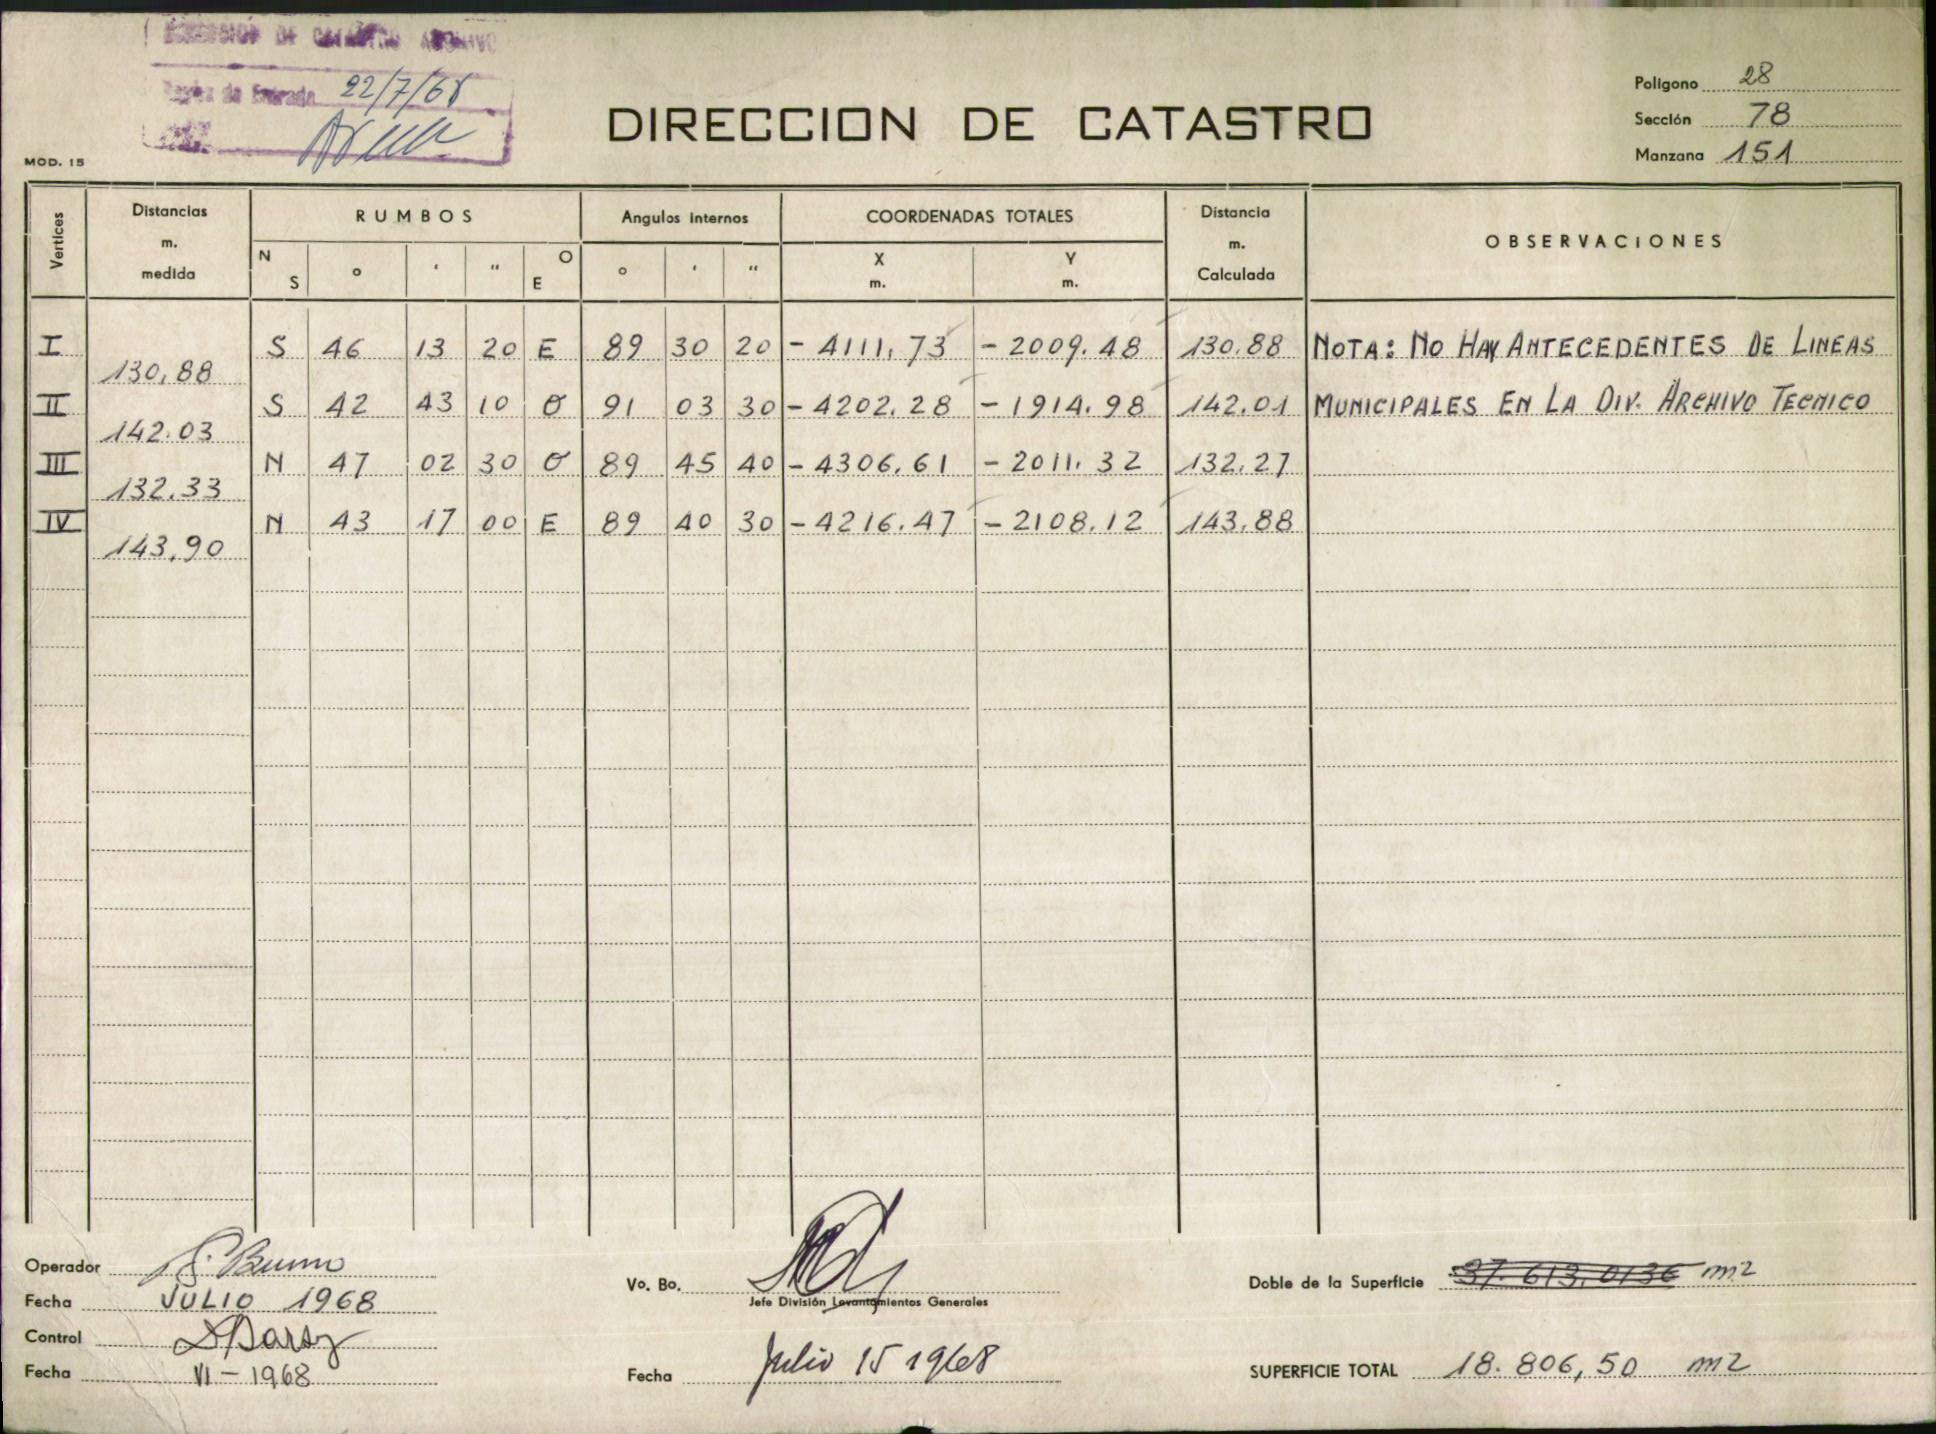 DE CATASTRO ARCHIVO
de Entrada 22/7/68
MOD. 15
DIRECCION DE CATASTRO
Poligono 28
Sección 78
Manzana 151
Vertices Distancias m. medida RUMBOS Angulos internos COORDENADAS TOTALES Distancia m. Calculada OBSERVACIONES
N S ° ' " O E ° ' " X m. Y m.
I S 46 13 20 E 89 30 20 - 4111,73 - 2009.48 130.88 NOTA: NO HAY ANTECEDENTES DE LINEAS
130,88
II S 42 43 10 O 91 03 30 - 4202.28 - 1914.98 142.01 MUNICIPALES EN LA DIV. ARCHIVO TECNICO
142.03
III N 47 02 30 O 89 45 40 - 4306.61 - 2011.32 132.27
132.33
IV N 43 17 00 E 89 40 30 - 4216.47 - 2108.12 143,88
143,90
Operador
Fecha JULIO 1968
Control
Fecha VI - 1968
Vo. Bo.
Jefe División Levantamientos Generales
Fecha Julio 15 1968
Doble de la Superficie 37.613,0136 m2
SUPERFICIE TOTAL 18.806,50 m2